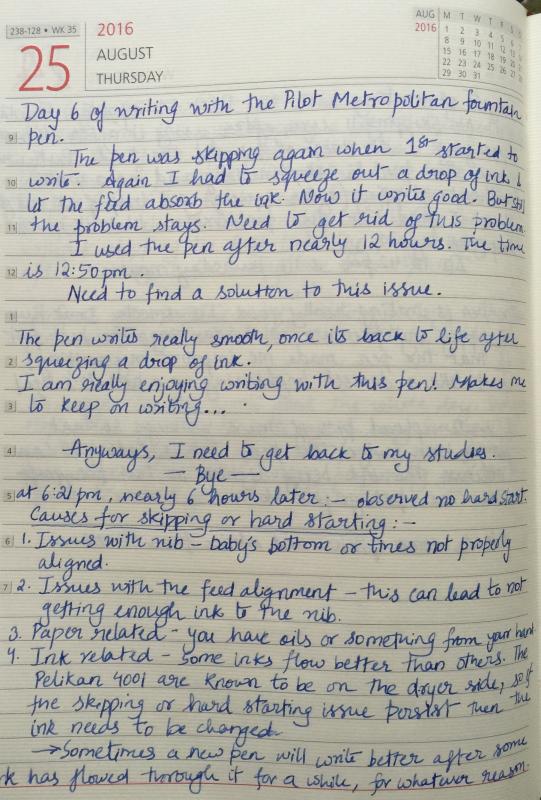 238-128 • WK 35
25
2016
AUGUST
THURSDAY
AUG
2016
M T W T F S S
1 2 3 4 5 6
8 9 10 11 12 13
15 16 17 18 19 20
22 23 24 25 26 27
29 30 31
Day 6 of writing with the Pilot Metropolitan fountain
pen.
9
The pen was skipping again when 1st started to
10 write. Again I had to squeeze out a drop of ink &
let the feed absorb the ink. Now it writes good. But still
11 the problem stays. Need to get rid of this problem
I used the pen after nearly 12 hours. The time
12 is 12:50pm.
Need to find a solution to this issue.
1
The pen writes really smooth, once its back to life after
2 squeezing a drop of ink.
I am really enjoying writing with this pen! Makes me
3 to keep on writing...
4 Anyways, I need to get back to my studies.
— Bye —
5 at 6:21pm, nearly 6 hours later :– observed no hard start.
Causes for skipping or hard starting :–
6 1. Issues with nib – baby's bottom or tines not properly
aligned.
7 2. Issues with the feed alignment – this can lead to not
getting enough ink to the nib.
3. Paper related – you have oils or something from your hand
4. Ink related – Some inks flow better than others. The
Pelikan 4001 are known to be on the dryer side, so if
the skipping or hard starting issue persist then the
ink needs to be changed.
→ Sometimes a new pen will write better after some
k has flowed thorough it for a while, for whatever reason.